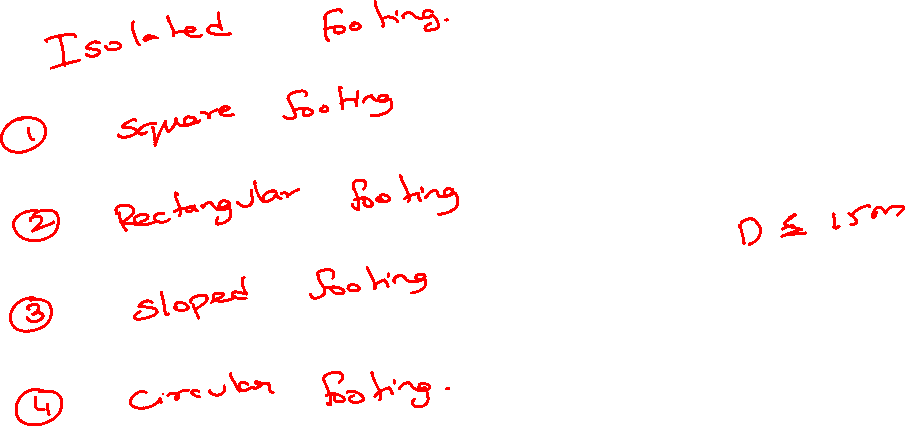 Isolated footing.
① square footing
② Rectangular footing
D ≤ 15m
③ sloped footing
④ circular footing.